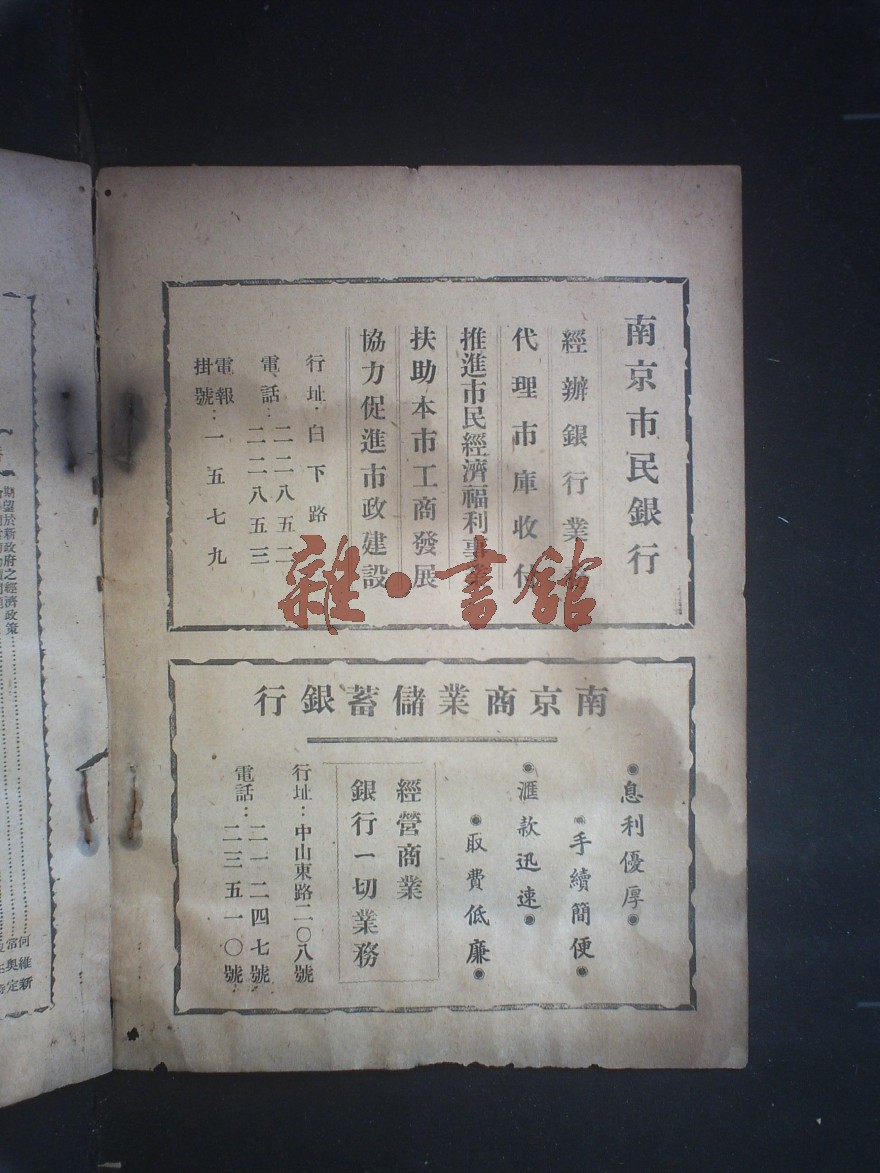 南京市民銀行
經辦銀行業務
代理市庫收付
推進市民經濟福利事業
扶助本市工商發展
協力促進市政建設
行址·白下路
電話：二二八五二
二二八五三
電報掛號：一五七九
雜·書館
南京商業儲蓄銀行
息利優厚
手續簡便
滙款迅速
取費低廉
經營商業
銀行一切業務
行址：中山東路二〇八號
電話：二一二四七號
二三五一〇號
期望於新政府之經濟政策
何維新
常奧定